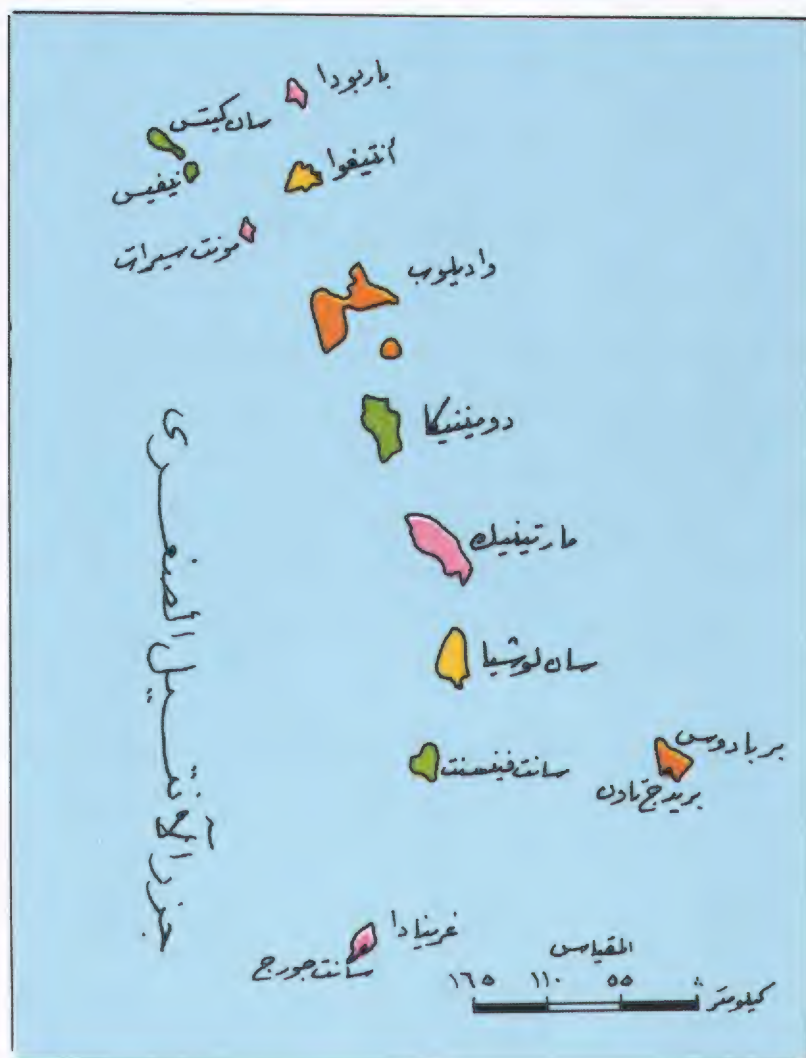 باربودا
سان كيتس
أنتيغوا
نيفيس
مونت سيرات
وادیلوب
دومينيكا
مارتينيك
سان لوشيا
سانت فينسنت
بربادوس
بريدج تاون
غرينادا
سانت جورج
جزر الآنتيل الصغرى
المقياس
١٦٥ ١١٠ ٥٥ ٠
كيلومتر